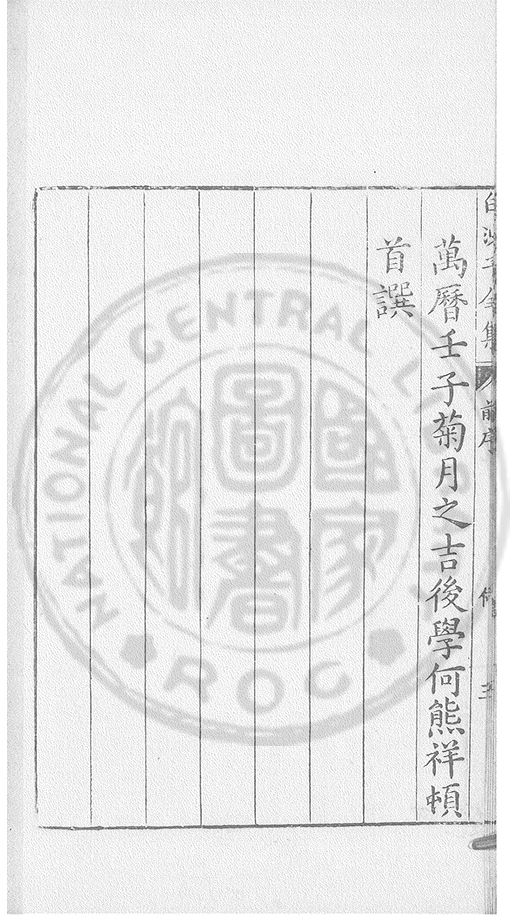 萬曆壬子菊月之吉後學何熊祥頓
首譔
白沙子全集
前序
NATIONAL CENTRAL LIBRARY
ROC
國家圖書館